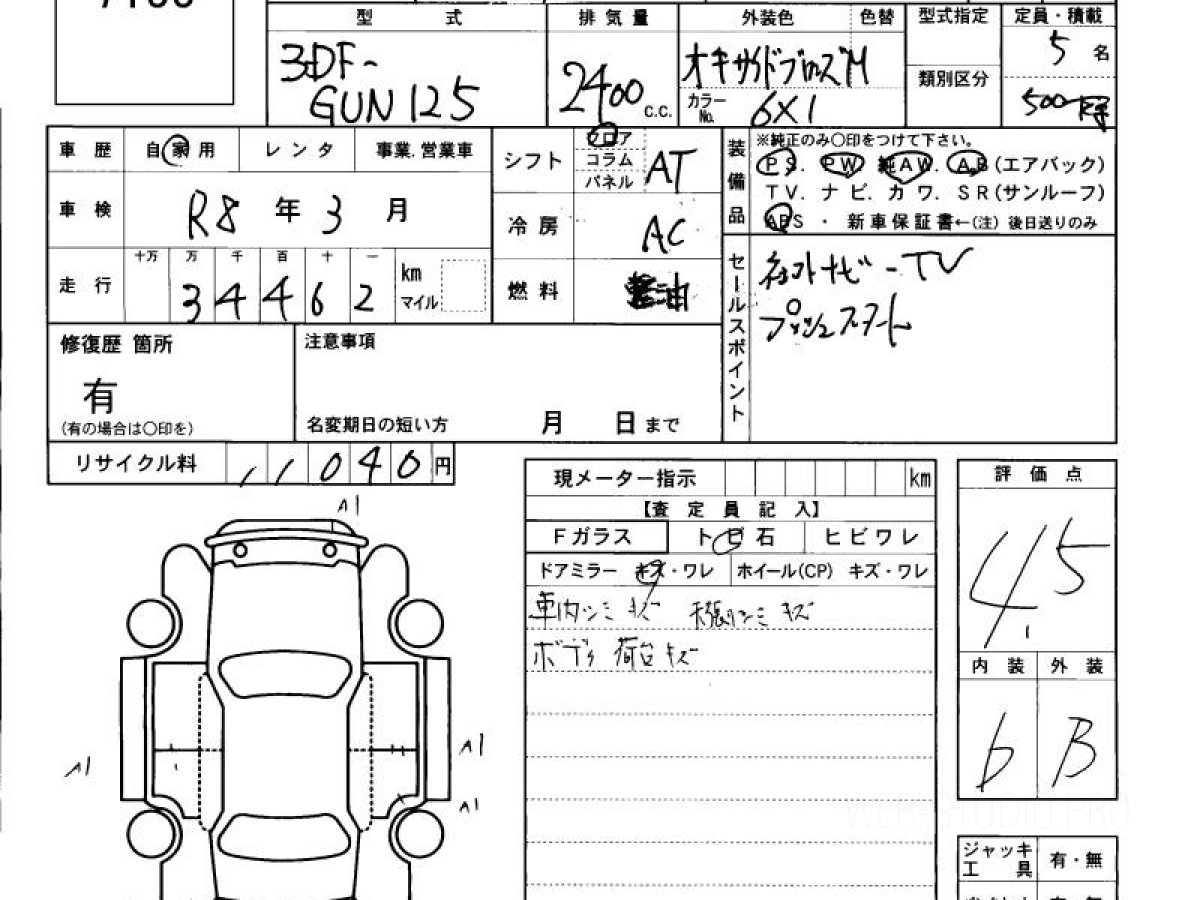 型 式 排気量 外装色 色替 型式指定 定員・積載
3DF-
GUN125
2400 c.c.
オキサイドブロンズM
カラーNo. 6X1
類別区分
5 名
500
車歴 自家用 レンタ 事業.営業車
シフト フロア
コラム
パネル
AT
装備品
※純正のみ○印をつけて下さい。
PS. PW. 純AW. A.B(エアバック)
TV. ナビ. カワ. SR(サンルーフ)
ABS ・ 新車保証書←(注) 後日送りのみ
車検 R8 年 3 月
冷房 AC
走行 十万 万 千 百 十 一
34462
km
マイル
燃料 軽油
セールスポイント
社外ナビ-TV
プッシュスタート
修復歴 箇所
有
(有の場合は○印を)
注意事項
名変期日の短い方 月 日まで
リサイクル料 11040 円
現メーター指示 km
【査定員記入】
Fガラス トビ石 ヒビワレ
ドアミラー キズ・ワレ ホイール(CP) キズ・ワレ
車内シミ キズ 天張りシミ キズ
ボディ 荷台キズ
評価点
4.5
内装 外装
b B
ジャッキ
工具 有・無
A1
A1
A1
A1
WEB-STUDIO.PRO